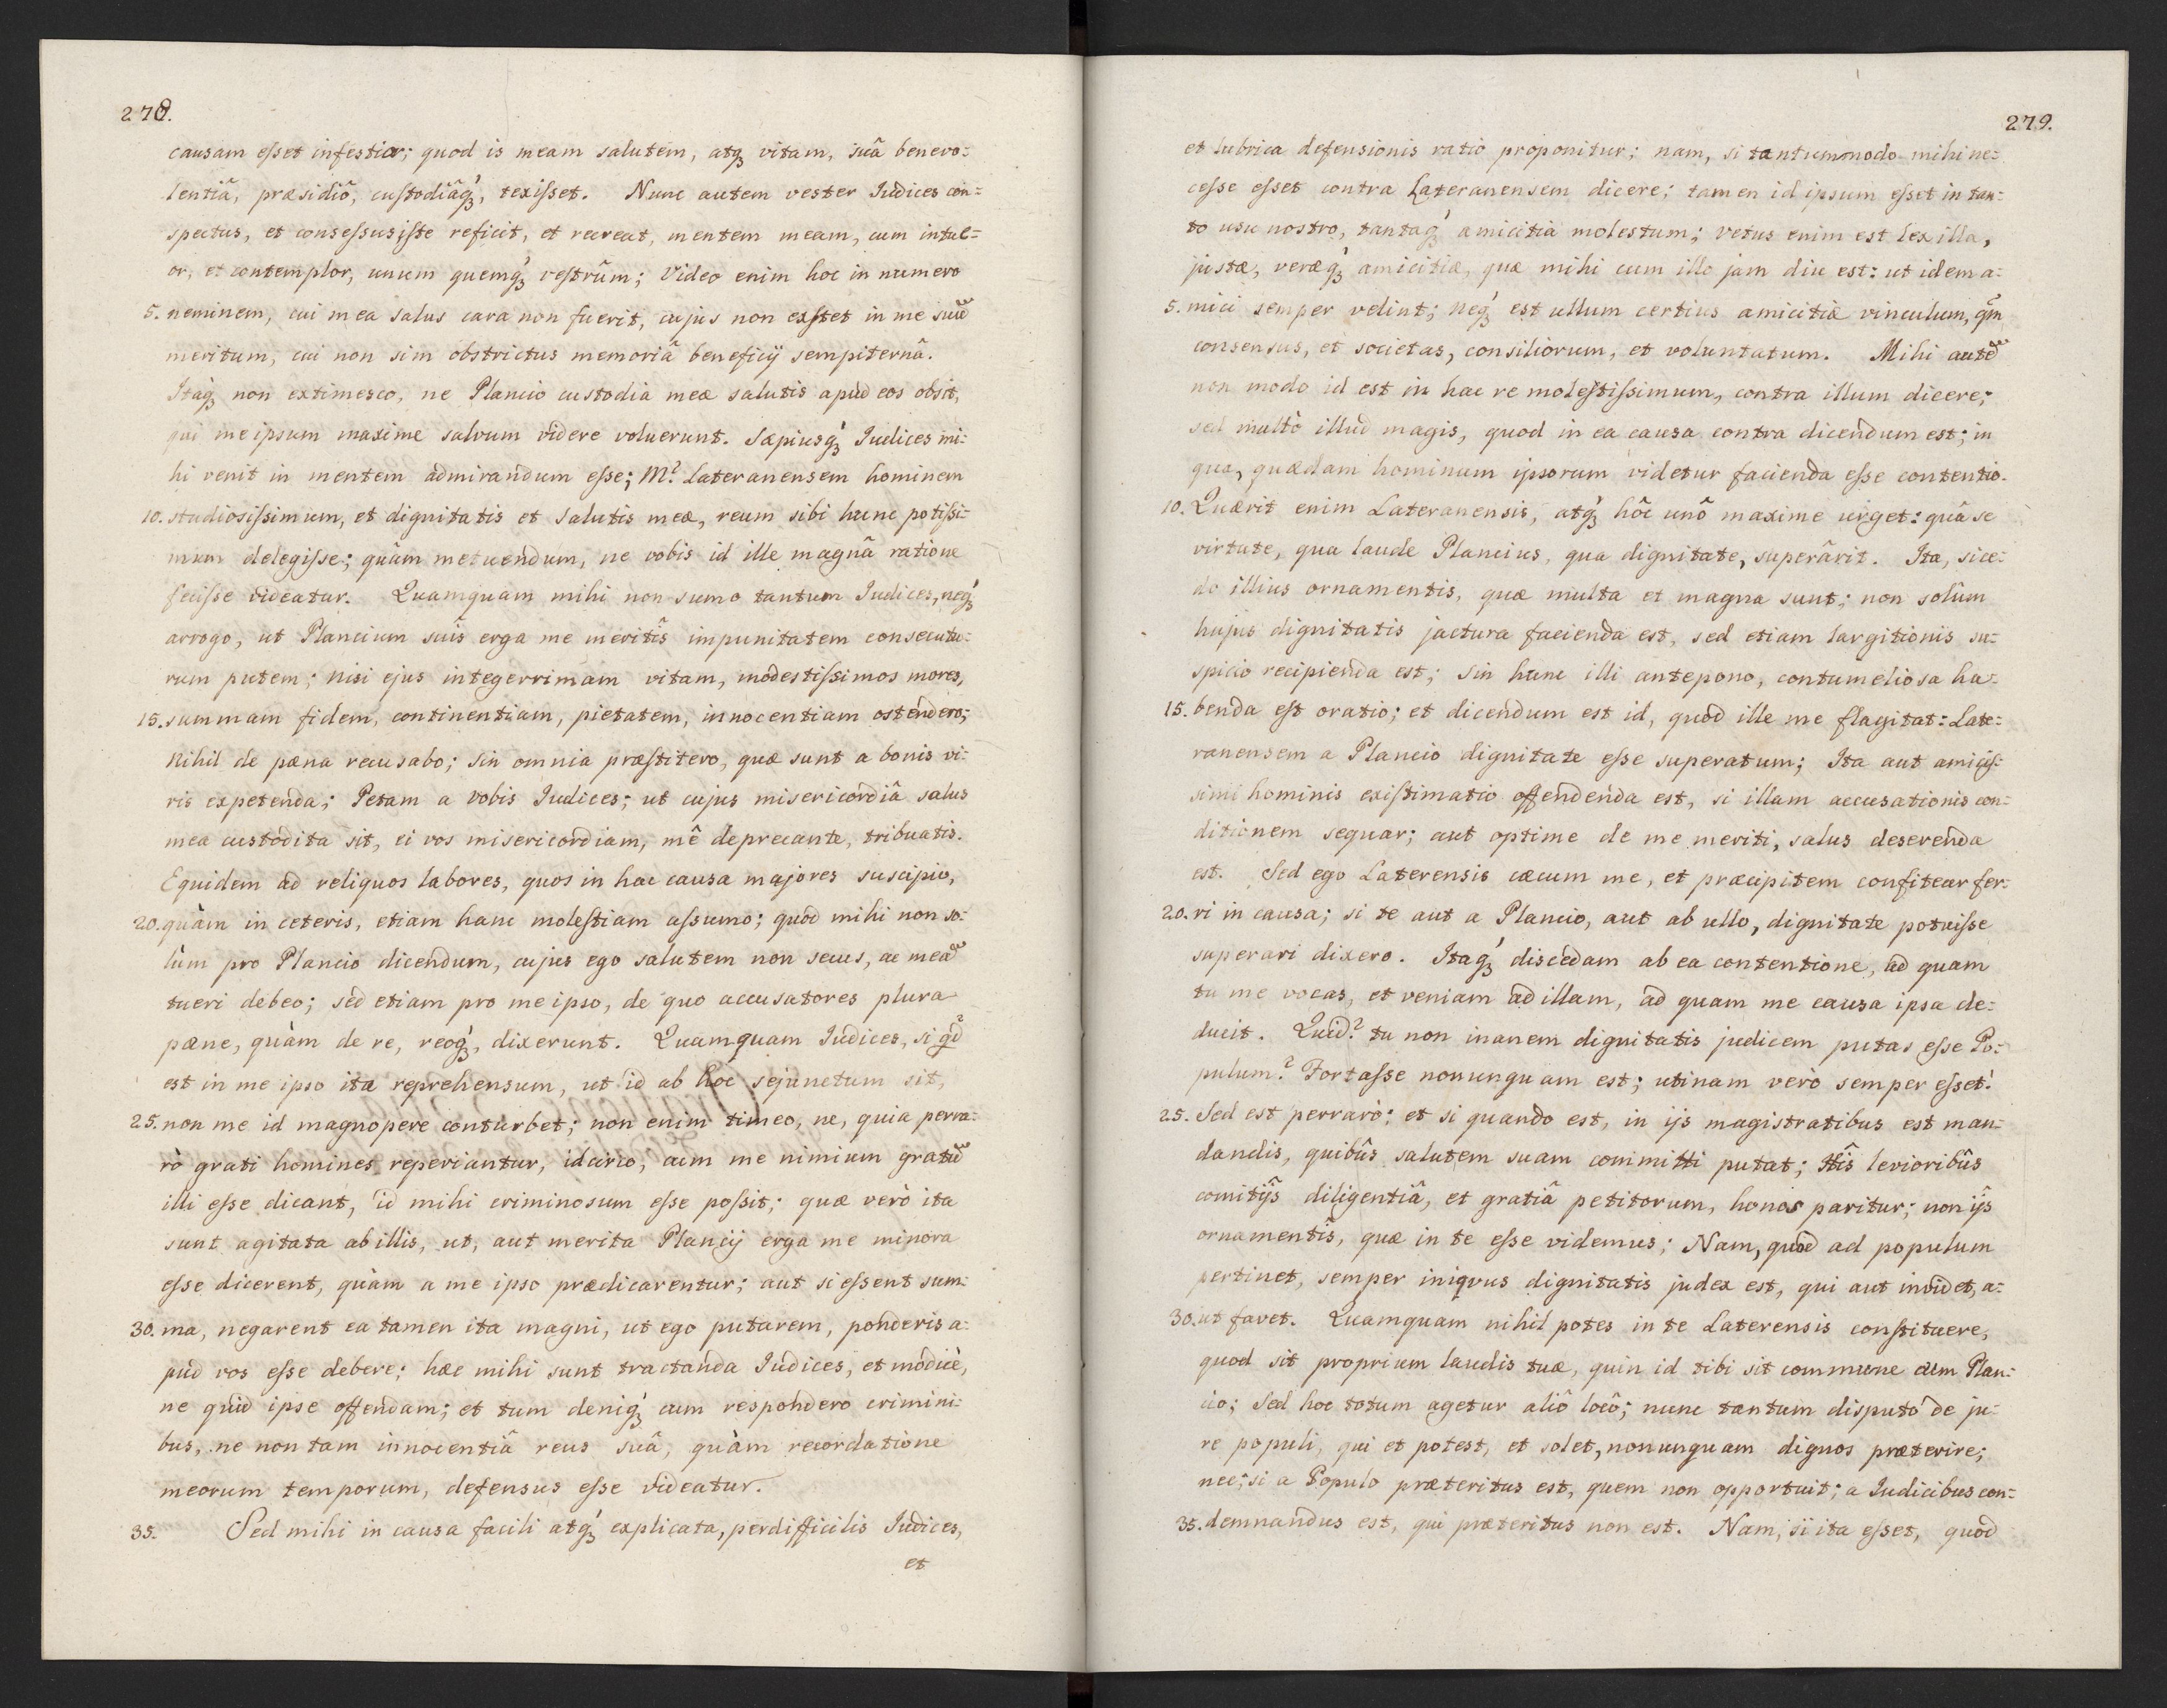 278.
causam eſset infestior; quod is meam salutem, atqȝ vitam, suâ benevo-
lentiâ, præsidiô, cuſtodiâqȝ, texiſset. Nunc autem vester Iudices con-
spectus, et conseſsus iſte reficit, et recreat, mentem meam, cum intue-
or, et contemplor, unum quemqȝ veſtrûm; Video enim hoc in numero
5. neminem, cui mea salus cara non fuerit, cujus non exſtet in me suũ
meritum, cui non sim obstrictus memoriâ beneficij sempiternâ.
Itaqȝ non extimesco, ne Plancio custodia meæ salutis apud eos obsit,
qui me ipsum maxime salvum videre voluerunt. Sæpiusqȝ Iudices mi-
hi venit in mentem admirandum eſse; M? Lateranensem hominem
10. studiosiſsimum, et dignitatis et salutis meæ, reum sibi hunc potiſsi-
mum delegiſse; quàm metuendum, ne vobis id ille magnâ ratione
feciſse videatur. Quamquam mihi non sumo tantum Iudices, neqȝ
arrogo, ut Plancium suîs erga me meritîs impunitatem consecutu-
rum putem; nisi ejus integerrimam vitam, modestiſsimos mores,
15. summam fidem, continentiam, pietatem, innocentiam ostendero;
Nihil de pæna recusabo; Sin omnia præſtitero, quæ sunt a bonis vi-
ris expetenda; Petam a vobis Iudices; ut cujus misericordiâ salus
mea custodita sit, ei vos misericordiam, mê deprecante, tribuatis.
Equidem ad reliquos labores, quos in hac causa majores suscipio,
20. quàm in ceteris, etiam hanc moleſtiam aſsumo; quod mihi non so-
lùm pro Plancio dicendum, cujus ego salutem non secus, ac meã
tueri debeo; sed etiam pro me ipso, de quo accusatores plura
pæne, quàm de re, reoqȝ, dixerunt. Quamquam Iudices, si qd
est in me ipso ita reprehensum, ut id ab hoc sejunctum sit,
25. non me id magnopere conturbet; non enim timeo, ne, quia perra-
rò grati homines reperiantur, idcirco, cum me nimium gratũ
illi eſse dicant, id mihi criminosum eſse poſsit; quæ verò ita
sunt agitata ab illis, ut, aut merita Plancij erga me minora
eſse dicerent, quàm a me ipso prædicarentur; aut si eſsent sum-
30. ma, negarent ea tamen ita magni, ut ego putarem, ponderis a-
pud vos eſse debere; hæc mihi sunt tractanda Iudices, et modicè,
ne quid ipse offendam; et tum deniqȝ cum respondero crimini-
bus, ne non tam innocentiâ reus suâ, quàm recordatione
meorum temporum, defensus eſse videatur.
35. Sed mihi in causa facili atqȝ explicata, perdifficilis Iudices,
et
279.
et lubrica defensionis ratio proponitur; nam, si tantummodo mihi ne-
ceſse eſset contra Lateranensem dicere; tamen id ipsum eſset in tan-
to usu nostro, tantaqȝ amicitia molestum; vetus enim est lex illa,
justæ, veræqȝ amicitiæ, quæ mihi cum illo jam diu est: ut idem a-
5. mici semper velint; neqȝ est ullum certius amicitiæ vinculum, qm̃
consensus, et societas, consiliorum, et voluntatum. Mihi autẽ
non modo id est in hac re moleſtiſsimum, contra illum dicere;
sed multò illud magis, quod in ea causa contra dicendum est; in
qua, quædam hominum ipsorum videtur facienda eſse contentio.
10. Quærit enim Lateranensis, atqȝ hôc unô maxime urget: quâ se
virtute, qua laude Plancius, qua dignitate, superârit. Ita, si ce-
do illius ornamentis, quæ multa et magna sunt; non solûm
hujus dignitatis jactura facienda est, sed etiam largitionis su-
spicio recipienda est; Sin hunc illi antepono, contumeliosa ha-
15. benda eſt oratio; et dicendum est id, quod ille me flagitat: Late-
ranensem a Plancio dignitate eſse superatum; Ita aut amiciſ-
simi hominis exiſtimatio offendenda est, si illam accusationis con-
ditionem sequar; aut optime de me meriti, salus deserenda
est. Sed ego Laterensis cæcum me, et præcipitem confitear fer-
20. ri in causa; si te aut a Plancio, aut ab ullo, dignitate potuiſse
superari dixero. Itaqȝ discedam ab ea contentione, ad quam
tu me vocas, et veniam ad illam, ad quam me causa ipsa de-
ducit. Quid? tu non inanem dignitatis judicem putas eſse Po-
pulum? Fortaſse nonunquam est; utinam verò semper eſset!
25. Sed est perrarò; et si quando est, in ijs magistratibus est man-
dandis, quibûs salutem suam committi putat; Hîs levioribûs
comitijs diligentiâ, et gratiâ petitorum, honos paritur; non ijs
ornamentîs, quæ in te eſse videmus; Nam, quod ad populum
pertinet, semper iniquus dignitatis judex est, qui aut invidet, a-
30. ut favet. Quamquam nihil potes in te Laterensis conſtituere,
quod sit proprium laudis tuæ, quin id tibi sit commune cum Plan-
cio; Sed hoc totum agetur aliô locô; nunc tantum disputo de ju-
re populi, qui et potest, et solet, nonunquam dignos præterire;
nec; si a Populo præteritus est, quem non opportuit; a Iudicibus con-
35. demnandus est, qui præteritus non est. Nam, si ita eſset, quod